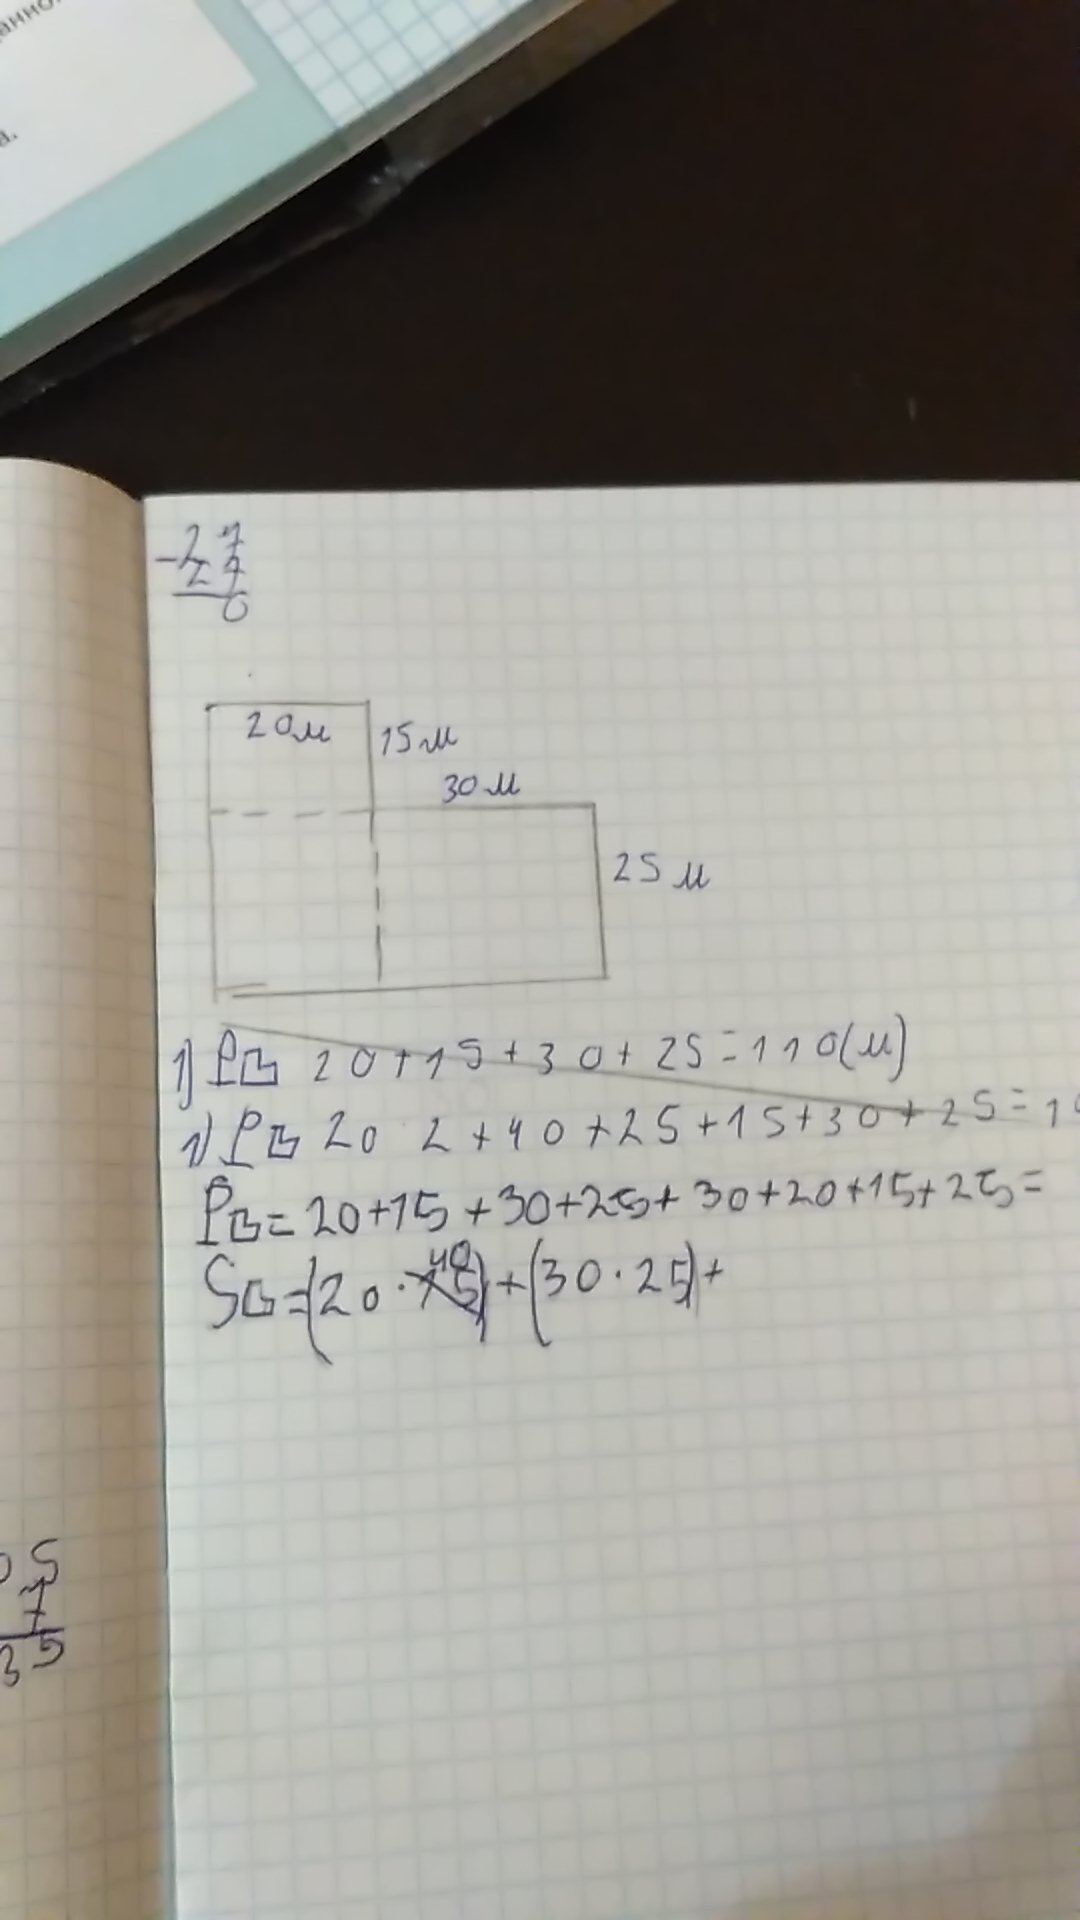 а.
- 27
27
0
20м
15м
30м
25м
1) P 20+15+30+25=110(м)
1) P 20 2+40+25+15+30+25=1
P = 20+15+30+25+30+20+15+25=
S = (20·15) 40 +(30·25)+
05
7
35